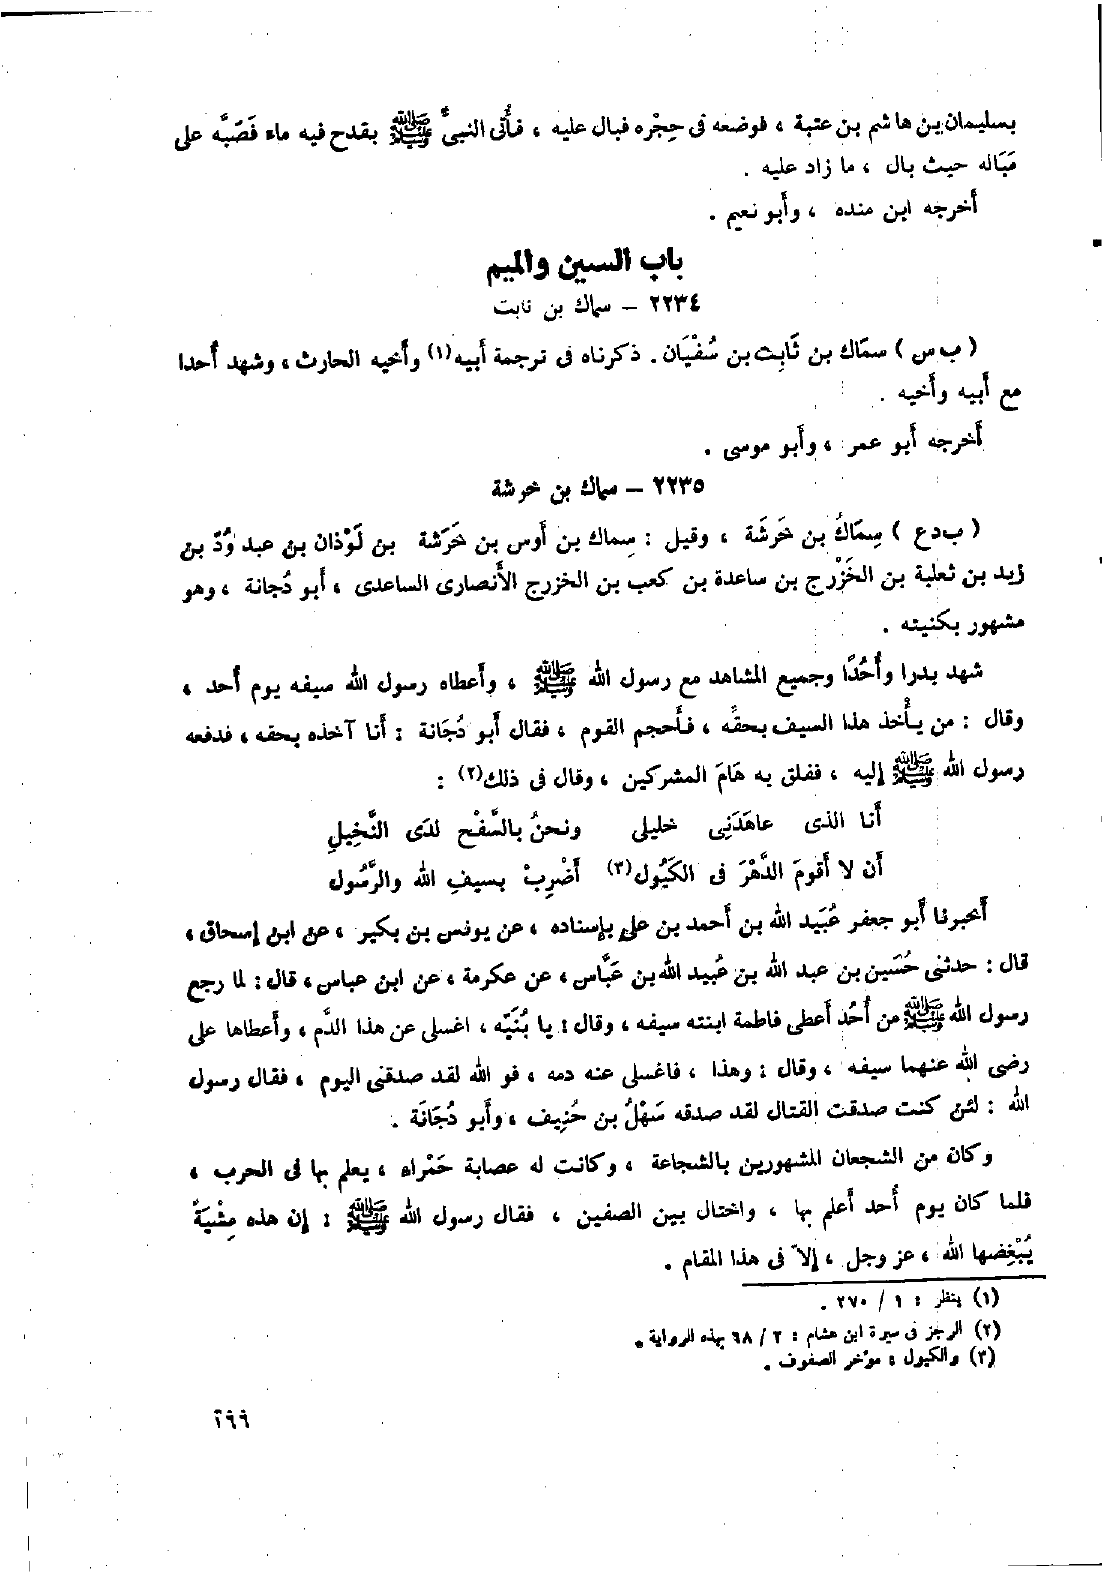 بسليمان بن هاشم بن عتبة ، فوضعه فى حِجْره فبال عليه ، فأُتى النبىُّ ﷺ بقدح فيه ماء فَصَبَّه على
مَبَاله حيث بال ، ما زاد عليه .
أخرجه ابن منده ، وأبو نعيم .
باب السين والميم
٢٢٣٤ – سماك بن ثابت
( ب س ) سمَاك بن ثَابِت بن سُفْيَان . ذكرناه فى ترجمة أبيه(١) وأخيه الحارث ، وشهد أُحدا
مع أبيه وأخيه .
أخرجه أبو عمر ، وأبو موسى .
٢٢٣٥ – سماك بن خرشة
( ب د ع ) سِمَاكُ بن خَرَشَة ، وقيل : سِماك بن أوس بن خَرَشة بن لَوْذان بن عبد وُدّ بن
زيد بن ثعلبة بن الخَزْرج بن ساعدة بن كعب بن الخزرج الأنصارى الساعدى ، أبو دُجانة ، وهو
مشهور بكنيته .
شهد بدرا وأُحُدًا وجميع المشاهد مع رسول الله ﷺ ، وأعطاه رسول الله سيفه يوم أحد ،
وقال : من يأْخذ هذا السيف بحقِّه ، فأحجم القوم ، فقال أبو دُجَانة : أنا آخذه بحقه ، فدفعه
رسول الله ﷺ إليه ، ففلق به هَامَ المشركين ، وقال فى ذلك(٢) :
أنا الذى عاهَدَنِى خليلى ونحنُ بالسَّفْح لدَى النَّخِيلِ
أن لا أقومَ الدَّهْرَ فى الكَيُول(٣) أضْرِبْ بسيفِ الله والرَّسُول
أخبرنا أبو جعفر عُبَيد الله بن أحمد بن على بإسناده ، عن يونس بن بكير ، عن ابن إسحاق ،
قال : حدثنى حُسَين بن عبد الله بن عُبيد الله بن عَبَّاس ، عن عكرمة ، عن ابن عباس ، قال : لما رجع
رسول الله ﷺ من أُحُد أعطى فاطمة ابنته سيفه ، وقال : يا بُنَيّه ، اغسلى عن هذا الدَّم ، وأعطاها على
رضى الله عنهما سيفه ، وقال : وهذا ، فاغسلى عنه دمه ، فو الله لقد صدقنى اليوم ، فقال رسول
الله : لئن كنت صدقت القتال لقد صدقه سَهْلُ بن حُنِيف ، وأبو دُجَانَة .
وكان من الشجعان المشهورين بالشجاعة ، وكانت له عصابة حَمْراء ، يعلم بها فى الحرب ،
فلما كان يوم أُحد أعلم بها ، واختال بين الصفين ، فقال رسول الله ﷺ : إن هذه مِشْيَةٌ
يُبْغِضها الله ، عز وجل ، إلاّ فى هذا المقام .
(١) ينظر : ١ / ٢٧٠ .
(٢) الرجز فى سيرة ابن هشام : ٢ / ٦٨ بهذه الرواية .
(٣) والكيول : مؤخر الصفوف .
٢٩٩